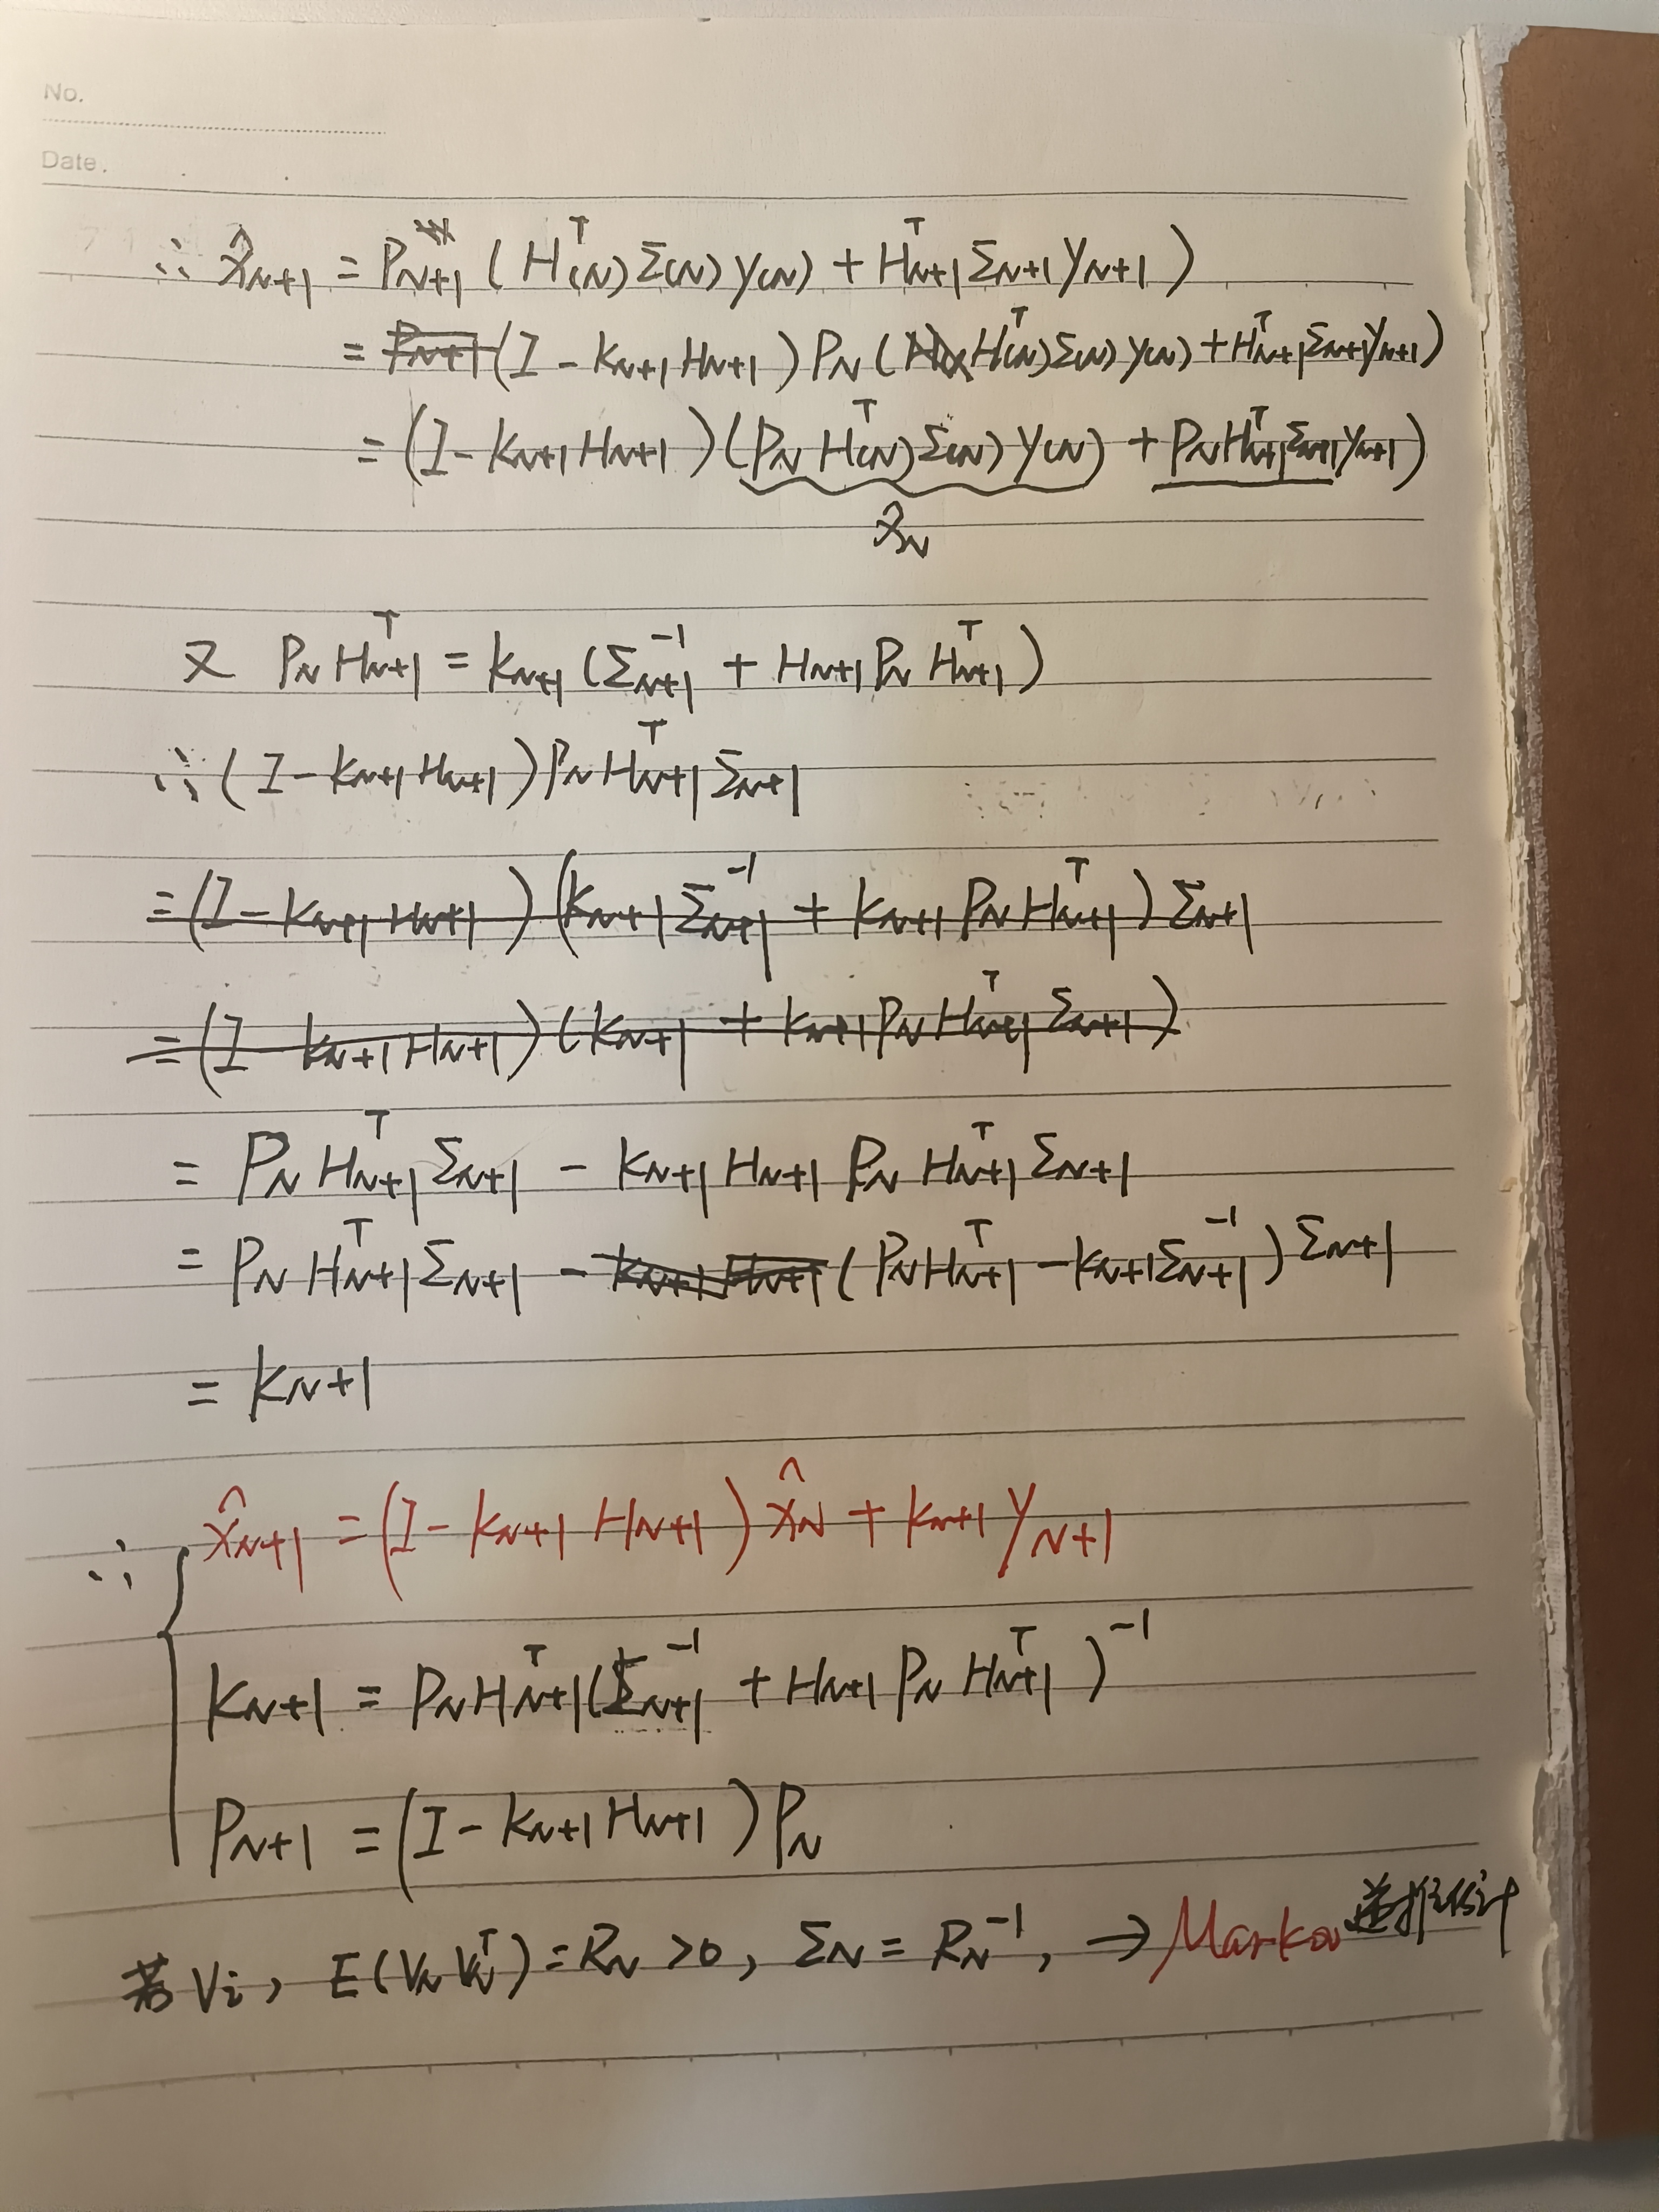 No.
Date.
∴ x̂_{N+1} = P_{N+1} ( H_{(N)}^T Σ_{(N)} y_{(N)} + H_{N+1}^T Σ_{N+1} y_{N+1} )
= (I - K_{N+1} H_{N+1}) P_N ( H_{(N)}^T Σ_{(N)} y_{(N)} + H_{N+1}^T Σ_{N+1} y_{N+1} )
= (I - K_{N+1} H_{N+1}) ( P_N H_{(N)}^T Σ_{(N)} y_{(N)} + P_N H_{N+1}^T Σ_{N+1} y_{N+1} )
x̂_N
又 P_N H_{N+1}^T = K_{N+1} ( Σ_{N+1}^{-1} + H_{N+1} P_N H_{N+1}^T )
∴ (I - K_{N+1} H_{N+1}) P_N H_{N+1}^T Σ_{N+1}
= (I - K_{N+1} H_{N+1}) ( K_{N+1} Σ_{N+1}^{-1} + K_{N+1} P_N H_{N+1}^T ) Σ_{N+1}
= (I - K_{N+1} H_{N+1}) ( K_{N+1} + K_{N+1} P_N H_{N+1}^T Σ_{N+1} )
= P_N H_{N+1}^T Σ_{N+1} - K_{N+1} H_{N+1} P_N H_{N+1}^T Σ_{N+1}
= P_N H_{N+1}^T Σ_{N+1} - ( P_N H_{N+1}^T - K_{N+1} Σ_{N+1}^{-1} ) Σ_{N+1}
= K_{N+1}
∴ { x̂_{N+1} = (I - K_{N+1} H_{N+1}) x̂_N + K_{N+1} y_{N+1}
K_{N+1} = P_N H_{N+1}^T ( Σ_{N+1}^{-1} + H_{N+1} P_N H_{N+1}^T )^{-1}
P_{N+1} = (I - K_{N+1} H_{N+1}) P_N
若 V_i, E(V_N V_N^T) = R_N > 0, Σ_N = R_N^{-1}, → Markov 递推估计